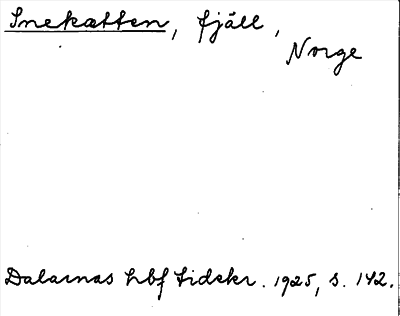 Snekatten, fjäll,
Norge
Dalarnas hbf tidskr. 1925, s. 142.